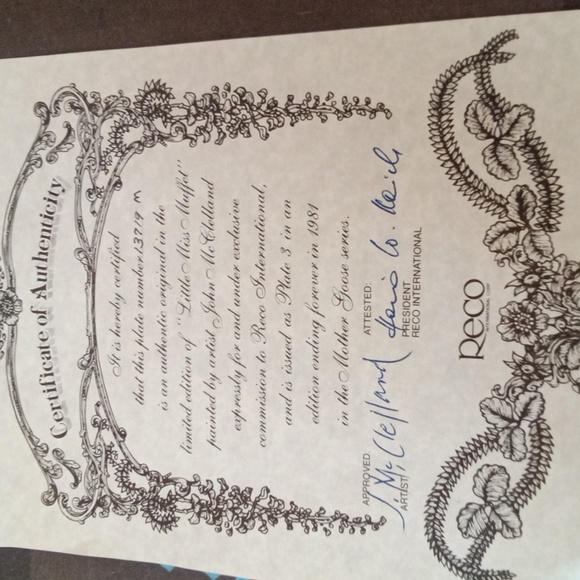 Certificate of Authenticity
It is hereby certified
that this plate number 13719 M
is an authentic original in the
limited edition of "Little Miss Muffet"
painted by artist John McClelland
expressly for and under exclusive
commission to Reco International,
and is issued as Plate 3 in an
edition ending forever in 1981
in the Mother Goose series.
APPROVED:
J McClelland
ARTIST
ATTESTED:
PRESIDENT
RECO INTERNATIONAL
Reco